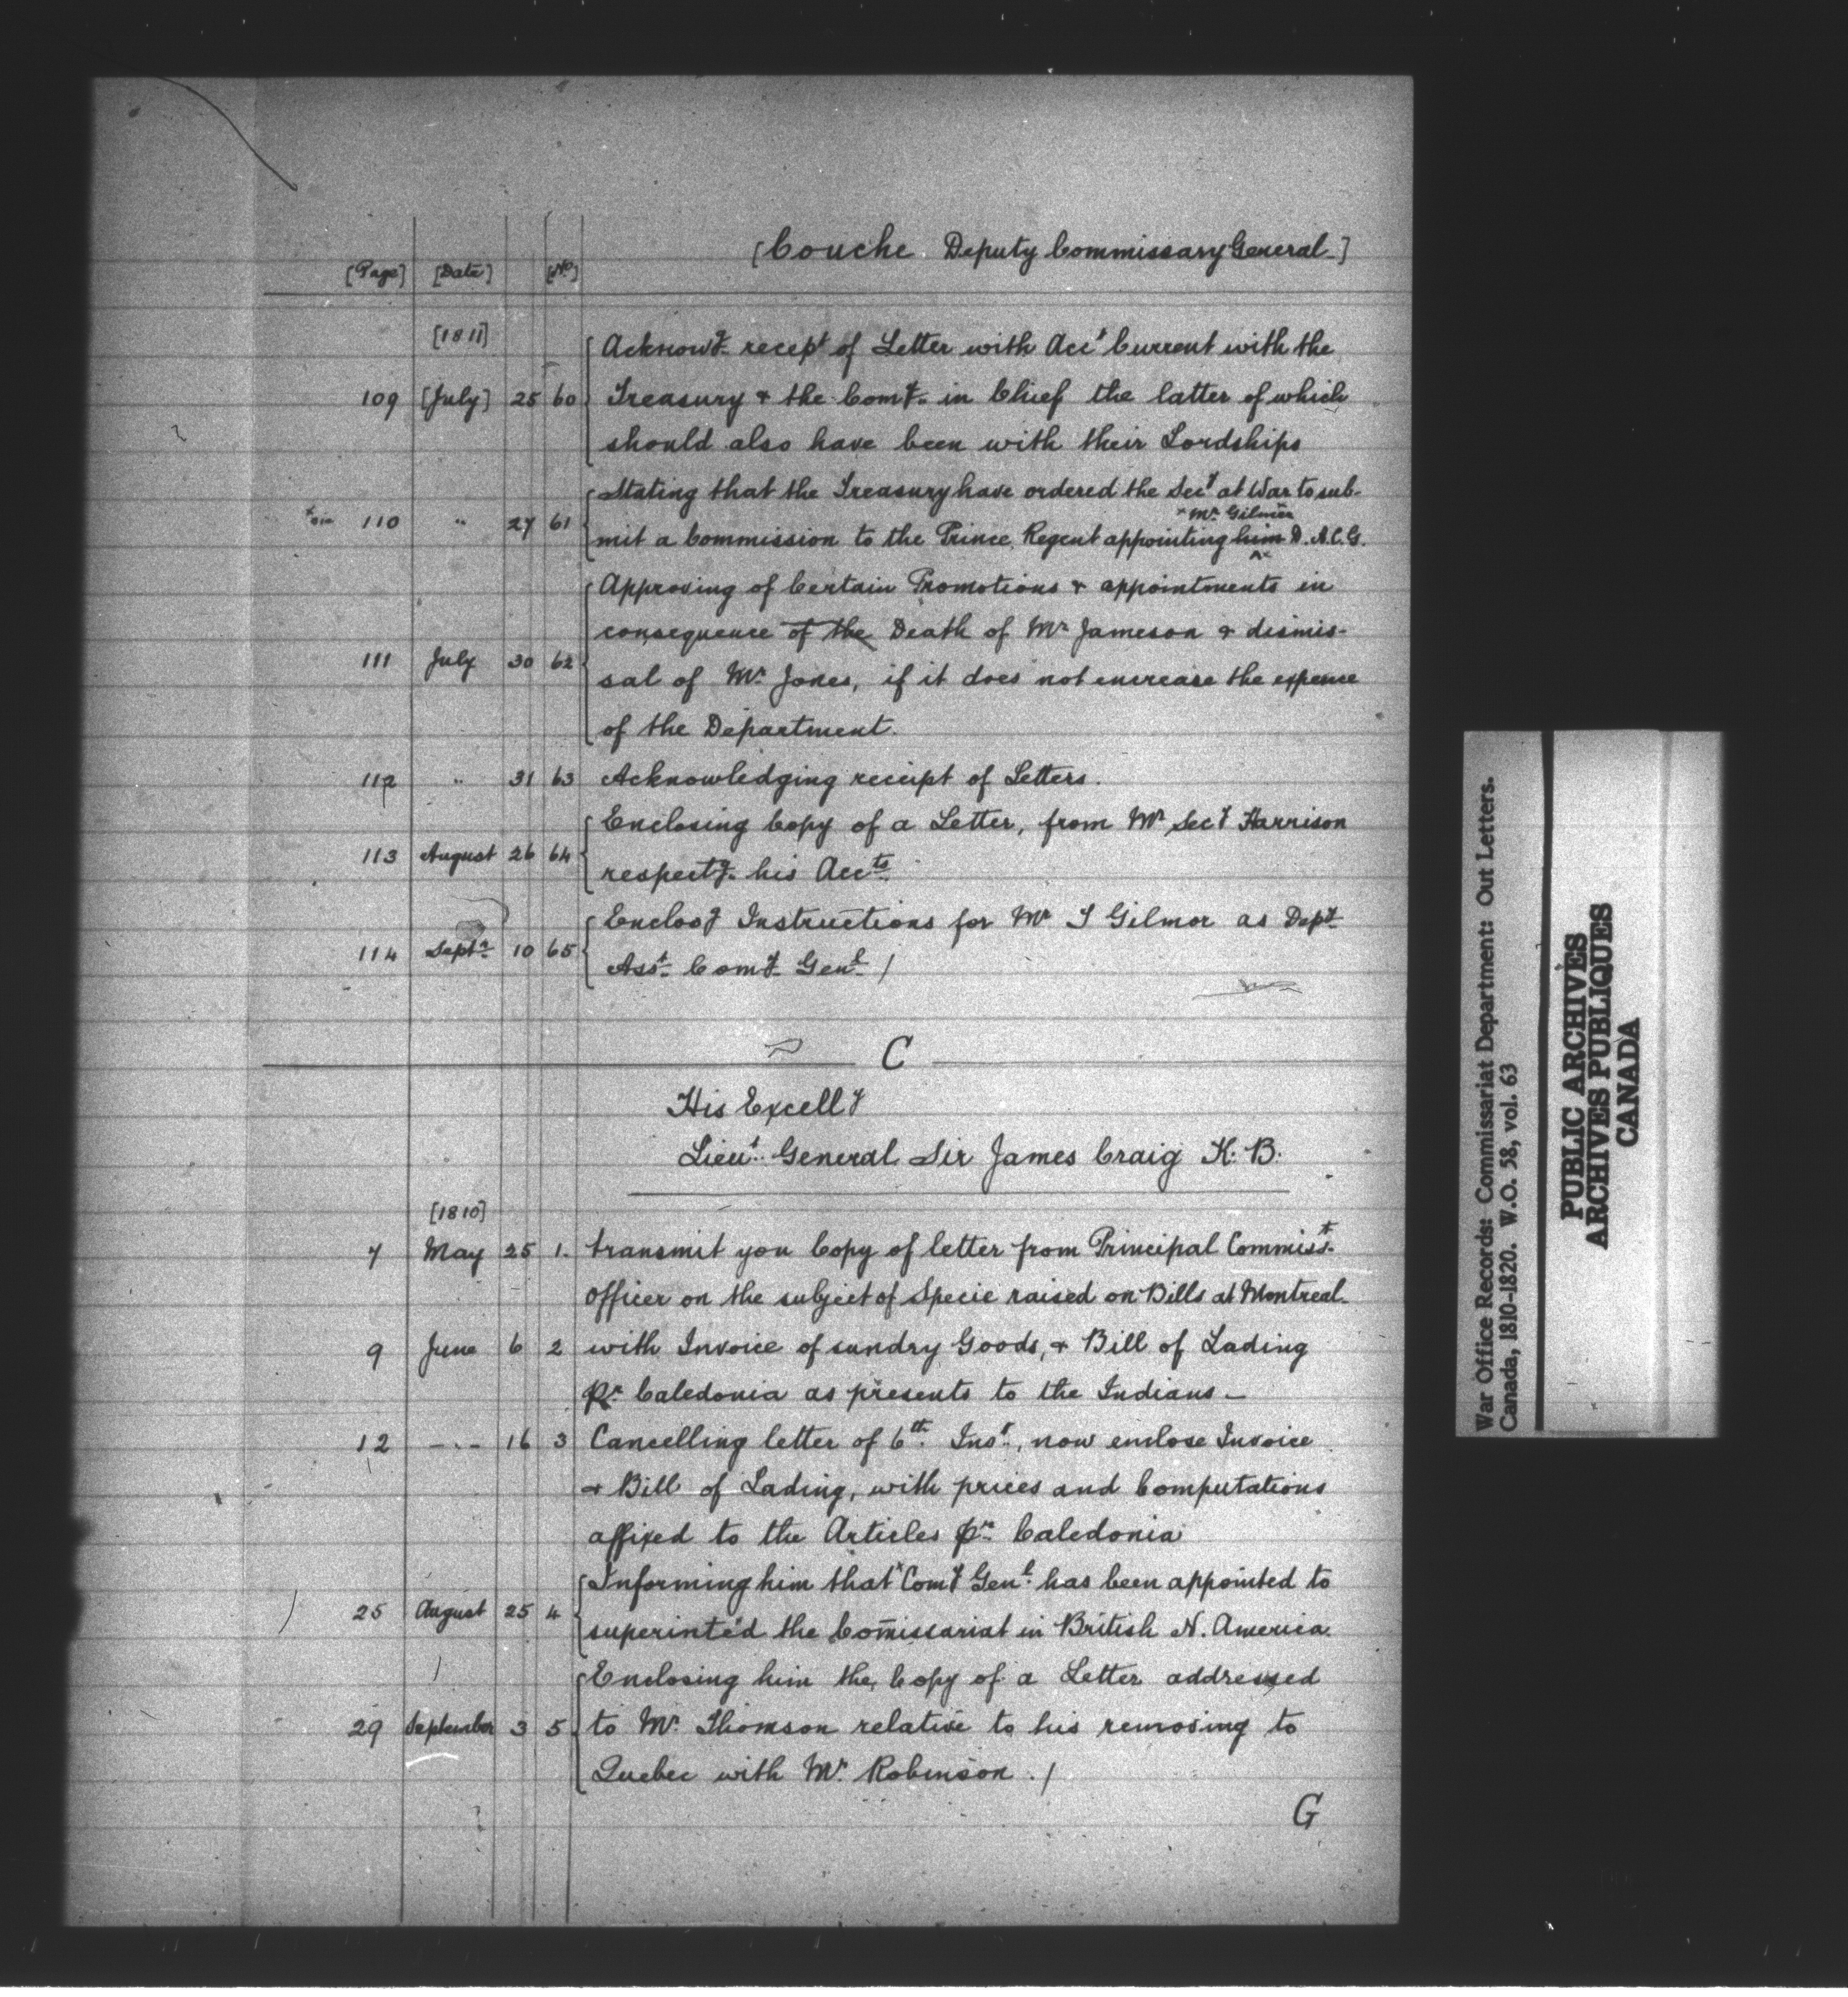 [Couche Deputy Commissary General]
[Page] [Date] [No]
[1811]
Acknowg recept of Letter with Acct Current with the
109 [July] 25 60 Treasury & the Comy in Chief the latter of which
should also have been with their Lordships
Stating that the Treasury have ordered the Secy at War to sub-
x Mr Gilmor
110 " 27 61 mit a Commission to the Prince Regent appointing him D. A. C. G.
Approving of Certain Promotions & appointments in
consequence of the Death of Mr Jameson & dismis-
111 July 30 62 sal of Mr Jones, if it does not encrease the expence
of the Department.
112 " 31 63 Acknowledging receipt of Letters.
Enclosing Copy of a Letter, from Mr Secy Harrison
113 August 26 64 respectg his Accts
Enclosg Instructions for Mr I Gilmor as Depy
114 Septr 10 65 Asst Comy Genl /
C
His Excelly
Lieut General Sir James Craig K. B.
[1810]
7 May 25 1. transmit you Copy of letter from Principal Commisst
Officer on the subject of Specie raised on Bills at Montreal
9 June 6 2 with Invoice of sundry Goods, & Bill of Lading
pr Caledonia as presents to the Indians -
12 -"- 16 3 Cancelling letter of 6th Inst, now enclose Invoice
& Bill of Lading, with prices and Computations
affixed to the Articles pr Caledonia
Informing him that x Comy Genl has been appointed to
25 August 25 4 superinted the Comissariat in British N. America
Enclosing him the Copy of a Letter addressed
29 September 3 5 to Mr Thomson relative to his removing to
Quebec with Mr Robinson. /
G
War Office Records: Commissariat Department: Out Letters.
Canada, 1810-1820. W.O. 58, vol. 63
PUBLIC ARCHIVES
ARCHIVES PUBLIQUES
CANADA